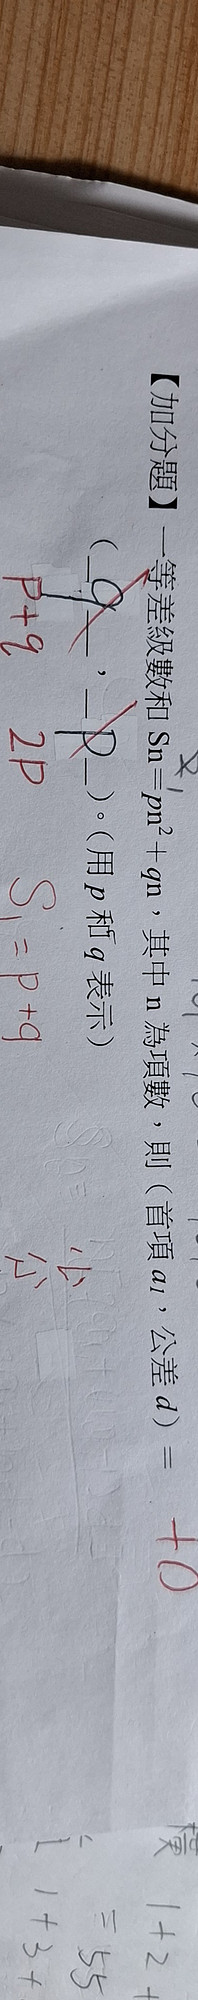 【加分題】一等差級數和 Sn=pn²+qn，其中 n 為項數，則（首項 a₁，公差 d）=
+0
（_q_，_p_）。（用 p 和 q 表示）
p+q 2p
S₁=p+q
1+2+
=55
1+3+